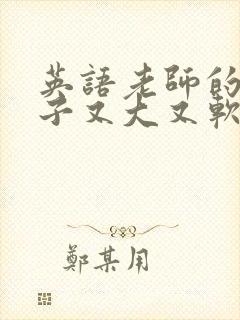 英語老師的
子又大又軟
鄭某用